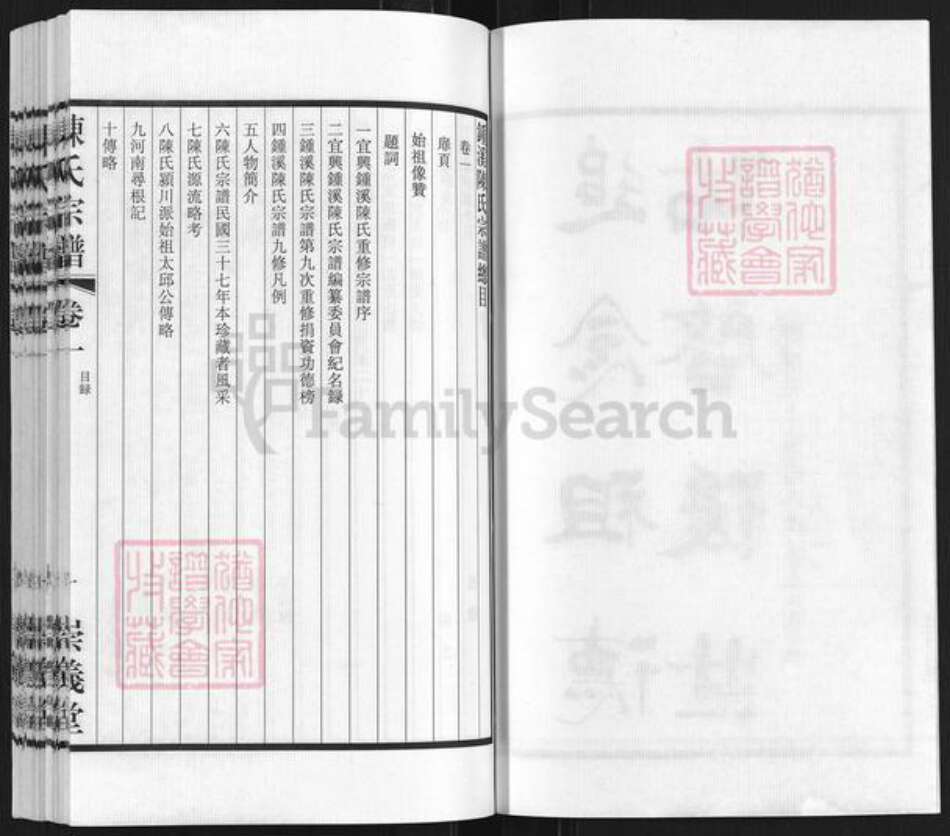 鍾溪陳氏宗譜總目
卷一
扉頁
始祖像贊
題詞
一宜興鍾溪陳氏重修宗譜序
二宜興鍾溪陳氏宗譜編纂委員會紀名録
三鍾溪陳氏宗譜第九次重修捐資功德榜
四鍾溪陳氏宗譜九修凡例
五人物簡介
六陳氏宗譜民國三十七年本珍藏者風采
七陳氏源流略考
八陳氏潁川派始祖太邱公傳略
九河南尋根記
十傳略
陳氏宗譜 卷一 目録 一 崇義堂
FamilySearch